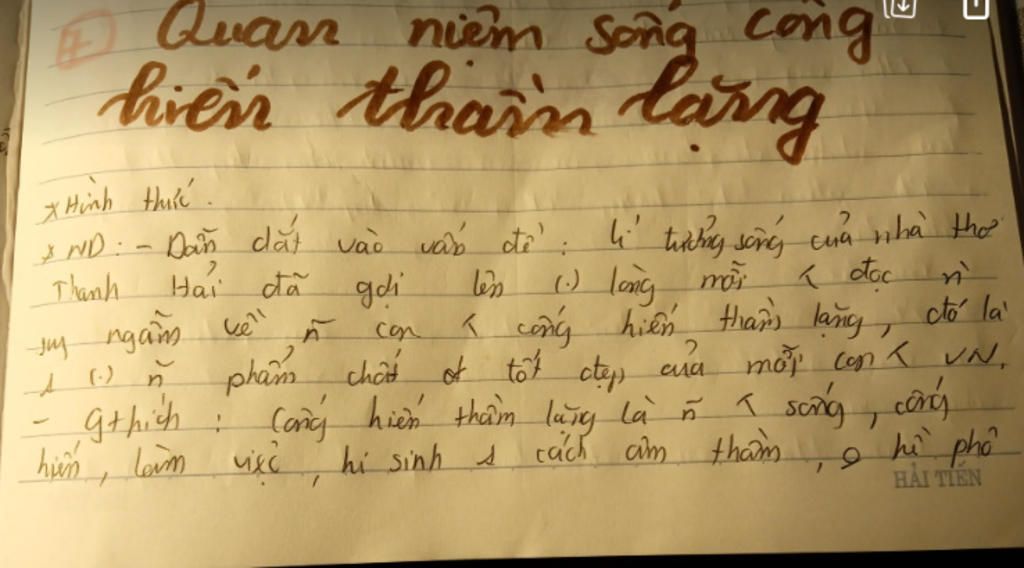 7 Quan niệm sống cống
hiến thầm lặng
* Hình thức.
* ND: - Dẫn dắt vào vấn đề: Lí tưởng sống của nhà thơ
Thanh Hải đã gợi lên (.) lòng mỗi < đọc n̄
suy ngẫm về n̄ con < cống hiến thầm lặng, đó là
1 (.) n̄ phẩm chất tốt đẹp của mỗi con < VN.
- Gthích: Cống hiến thầm lặng là n̄ < sống, cống
hiến, làm việc, hi sinh 1 cách âm thầm, hi phô
HẢI TIẾN